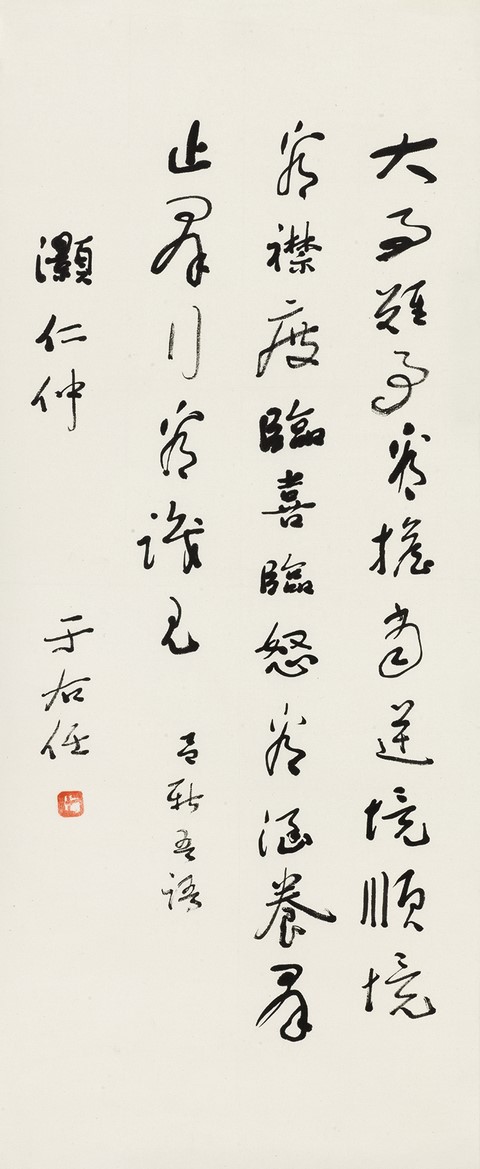 大事難事看擔當逆境順境
看襟度臨喜臨怒看涵養群
止群行看識見 呂新吾語
灝仁仲
于右任